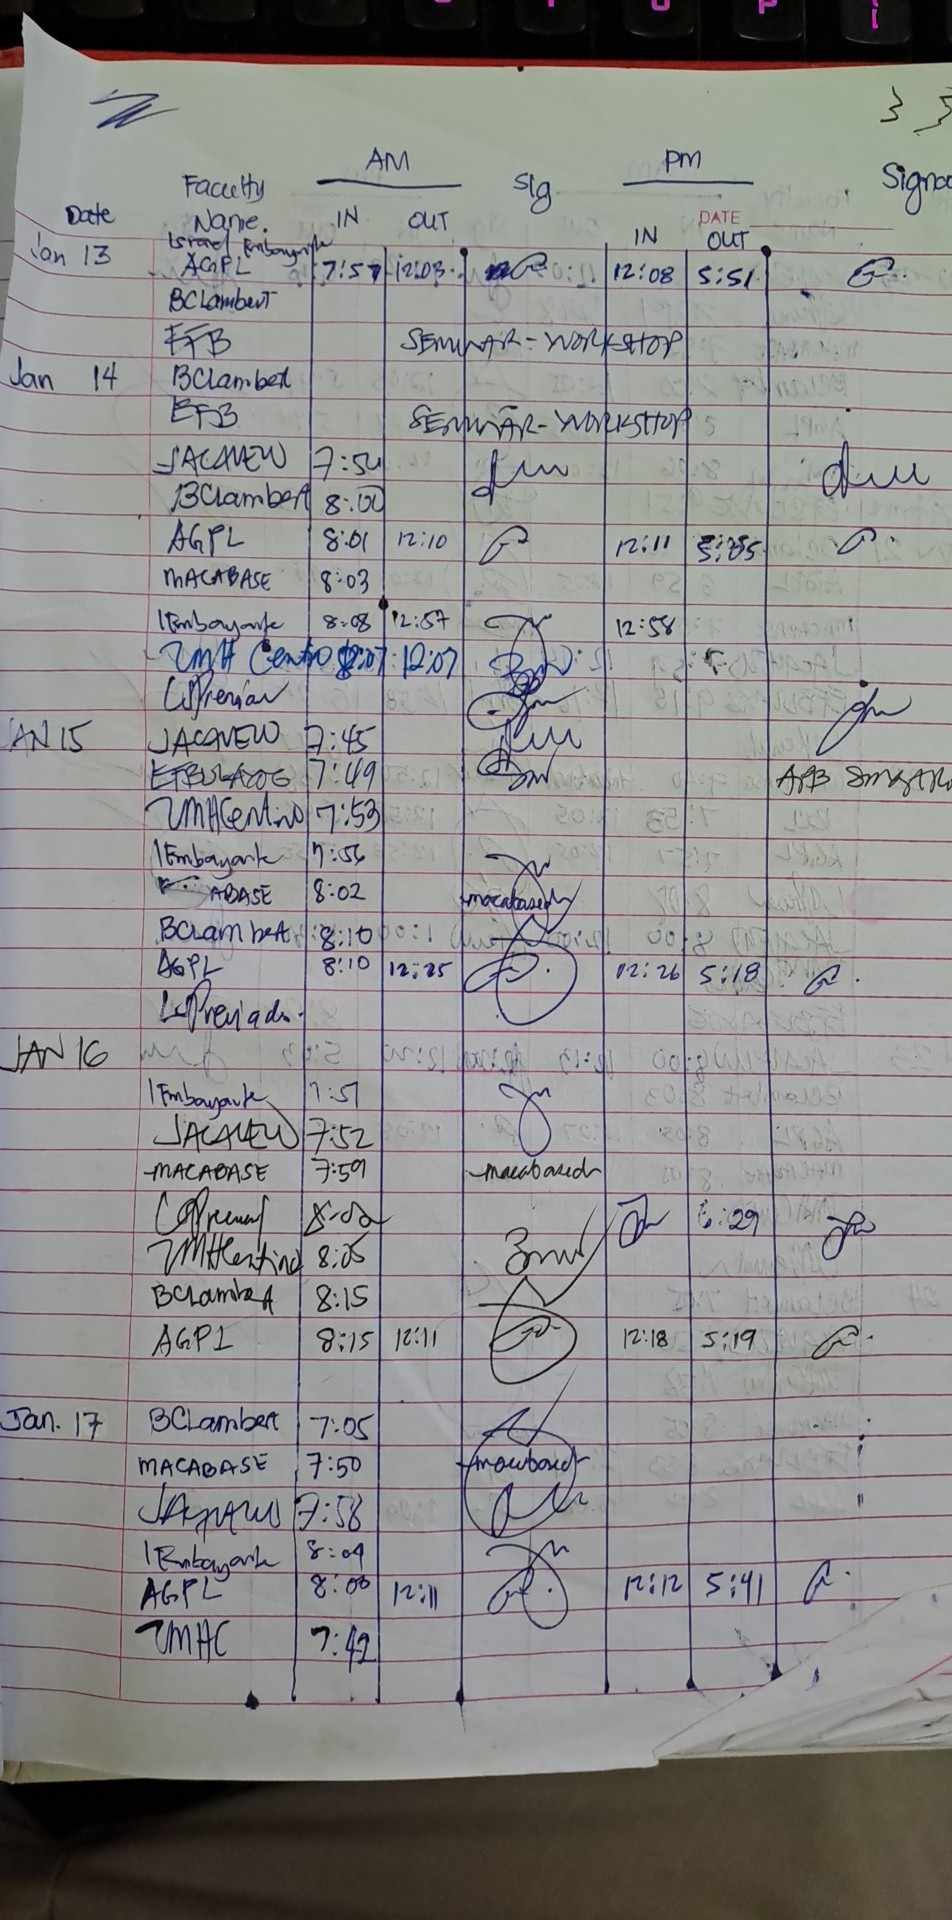 AM PM
Faculty Sig Signa
Date Name. IN OUT IN DATE OUT
Jan 13 Israel Embayarte
AGPL 7:57 12:03 12:08 5:51
BCLambert
EFB SEMINAR-WORKSHOP
Jan 14 BCLambert
EFB SEMINAR-WORKSHOP
JACAVEW 7:54
BCLambert 8:00
AGPL 8:01 12:10 12:11
MACABASE 8:03
IEmbayarte 8:08 12:57 12:58
ZMHCentino 12:07

JAN 15 JACAVEW 7:45
7:49
ZMHCentino 7:53
IEmbayarte 7:56
ABASE 8:02 macabased
BCLambert 8:10
AGPL 8:10 12:25 12:26 5:18

JAN 16
IEmbayarte 7:51
JACAVEW 7:52
MACABASE 7:59 macabased
8:02 29
ZMHCentino 8:05
BCLambert 8:15
AGPL 8:15 12:11 12:18 5:19
Jan. 17 BCLambert 7:05
MACABASE 7:50 macabased
JACAVEW 7:58
IEmbayarte 8:04
AGPL 12:11 12:12 5:41
ZMHC 7:42